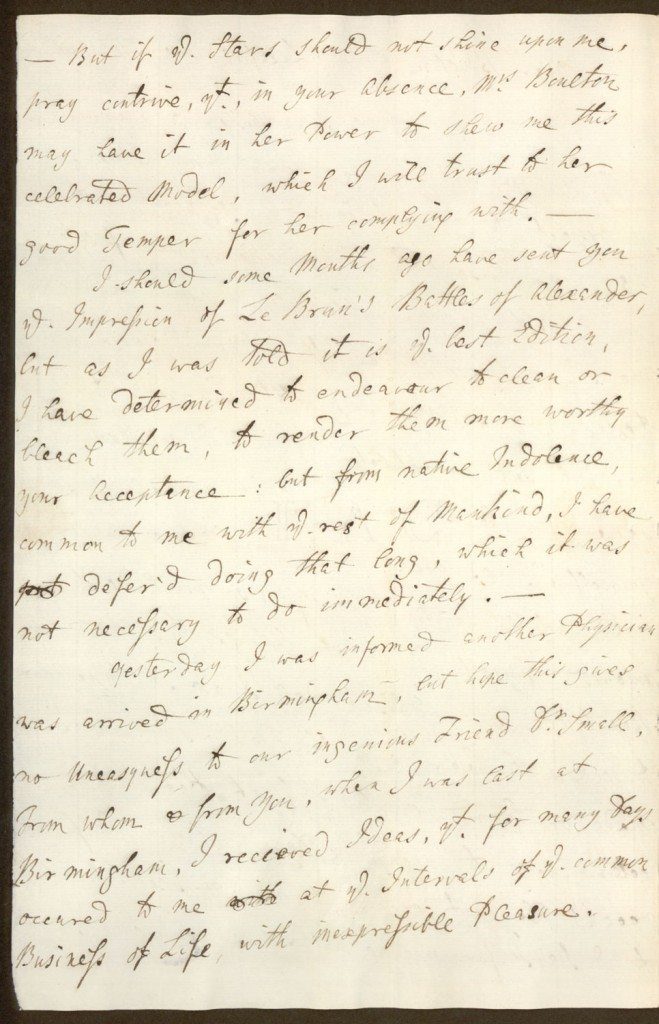 — But if ye. Stars should not shine upon me,
pray contrive, yt., in your absence, Mrs Boulton
may have it in her Power to shew me this
celebrated Model, which I will trust to her
good Temper for her complying with. —
I should some Months ago have sent you
ye. Impression of Le Brun's Battles of Alexander,
but as I was told it is ye. best Edition,
I have determined to endeavour to clean or
bleach them, to render them more worthy
your Acceptance: but from native Indolence,
common to me with ye. rest of Mankind, I have
defer'd doing that long, which it was
not necessary to do immediately. —
Yesterday I was informed another Physician
was arrived in Birmingham, but hope this gives
no Uneasyness to our ingenious Friend Dr Small,
From whom & from you, when I was last at
Birmingham, I recieved Ideas, yt. for many Days
occured to me with at ye. Intervals of ye. common
Business of Life, with inexpressible Pleasure.